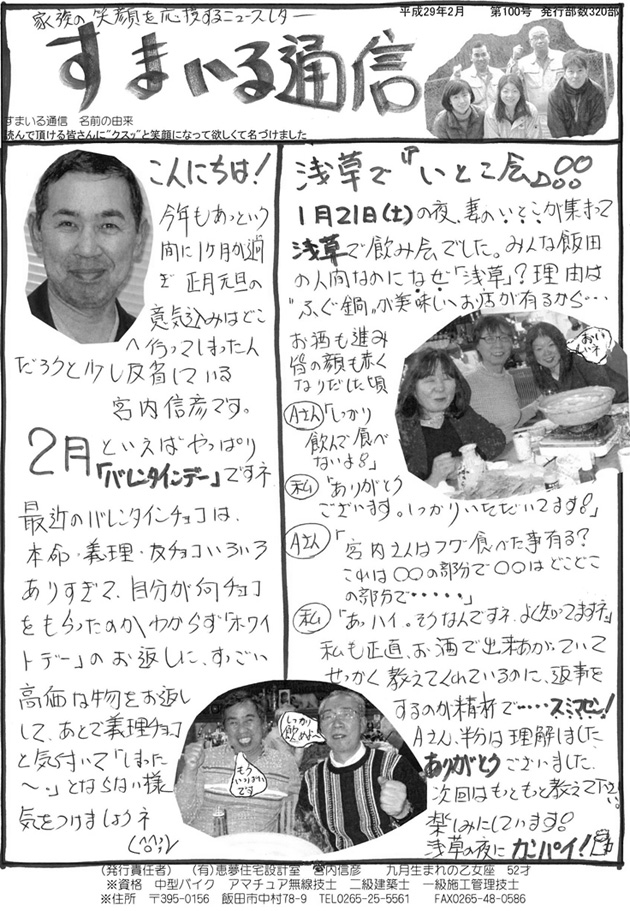 家族の笑顔を応援するニュースレター
平成29年2月　第100号　発行部数320部
すまいる通信
すまいる通信　名前の由来
読んで頂ける皆さんに"クスッ"と笑顔になって欲しくて名づけました
こんにちは!
今年もあっという
間に1ケ月が過
ぎ 正月元旦の
意気込みはどこ
へ行ってしまった人
だろうと少し反省している
宮内信彦です。
2月といえばやっぱり
「バレンタインデー」ですネ
最近のバレンタインチョコは、
本命・義理・友チョコいろいろ
ありすぎて、自分が何チョコ
をもらったのかわからず「ホワイ
トデー」のお返しに、すっごい
高価な物をお返し
して、あとで義理チョコ
と気付いて「しまった
〜」とならない様
気をつけましょうネ
(^^;)
浅草で『いとこ会』
1月21日(土)の夜、妻のいとこが集まって
浅草で飲み会でした。みんな飯田
の人間なのになぜ「浅草」?理由は
"ふぐ鍋"が美味しいお店が有るから・・・
お酒も進み
皆の顔も赤く
なりだした頃
おい しいネ
Aさん「しっかり
飲んで食べ
ないよ!」
私「ありがとう
ございます。しっかりいただいてます!」
Aさん「宮内さんはフグ食べた事有る?
これは〇〇の部分で〇〇はどこどこ
の部分で・・・・・」
私「あっハイ。そうなんですネ、よく知ってますネ」
私も正直、お酒で出来あがっていて
せっかく教えてくれているのに、返事を
するのが精杯で・・・・・スミマセン!
Aさん、半分は理解しました
ありがとうございました
次回はもっともっと教えて下さい
楽しみにしています!
浅草の夜にカンパイ!
しっかり
飲め〜
もう
いっぱい
です
(発行責任者)　(有)恵夢住宅設計室　宮内信彦　九月生まれの乙女座　52才
※資格　中型バイク　アマチュア無線技士　二級建築士　一級施工管理技士
※住所　〒395-0156　飯田市中村78-9　TEL0265-25-5561　FAX0265-48-0586